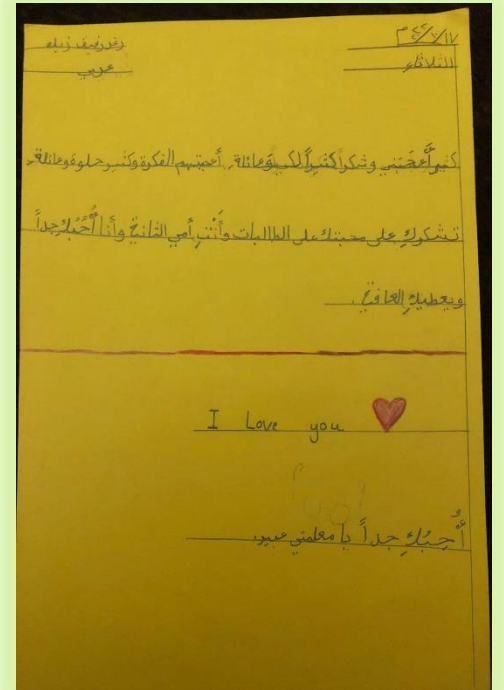 الثلاثاء
عربي
كثير أَعجَبَني وشكراً كثيراً لكي وعائلة. أعجبتهم الفكرة وكثير حلوة وعائلة
تشكركِ على محبتك على الطالبات وأَنْتِ أمي الثانية وأنا أُحُبُكِ جداً
ويعطيكِ العافية.
I Love you
أُحِبُكِ جداً يا معلمتي عبير.